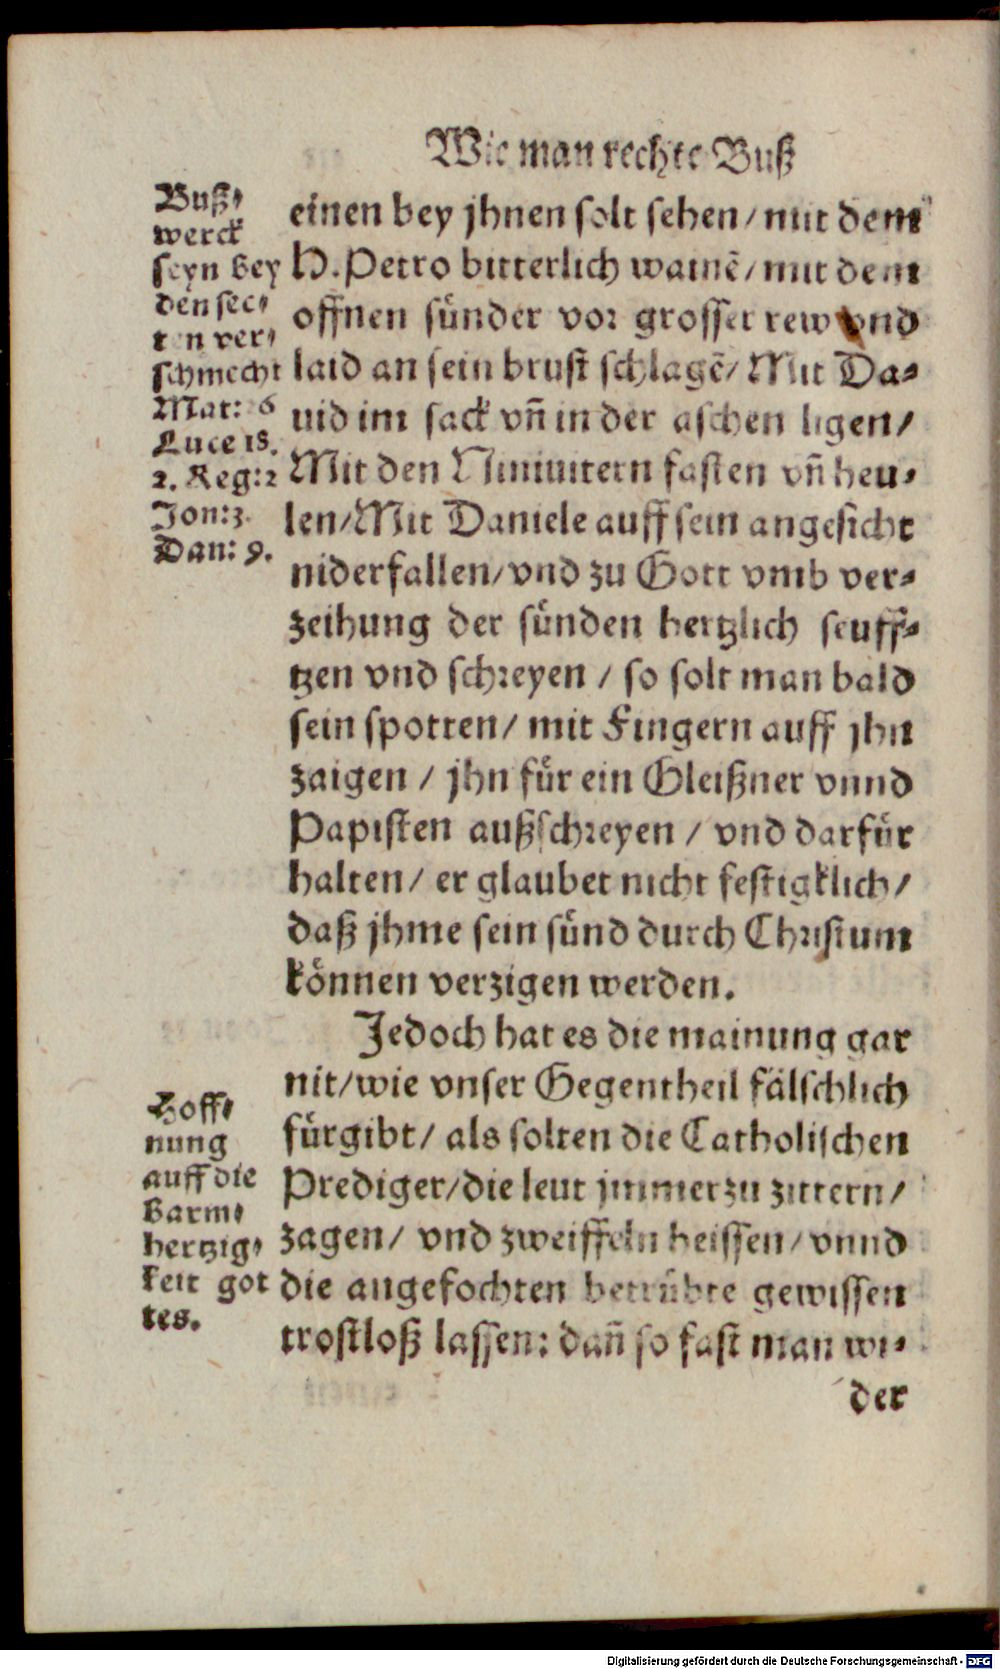 Wie man rechte Buß
Buß⸗
werck
seyn bey
den sec⸗
ten ver⸗
schmecht
Mat: 26
Luce 18.
2. Reg: 12
Jon: 3.
Dan: 9.
einen bey jhnen solt sehen / mit dem
H. Petro bitterlich wainē / mit dem
offnen sünder vor grosser rew vnd
laid an sein brust schlagē / Mit Da⸗
uid im sack vñ in der aschen ligen /
Mit den Niniuitern fasten vñ heu⸗
len / Mit Daniele auff sein angesicht
niderfallen / vnd zu Gott vmb ver⸗
zeihung der sünden hertzlich seuff⸗
tzen vnd schreyen / so solt man bald
sein spotten / mit Fingern auff jhn
zaigen / jhn für ein Gleißner vnnd
Papisten außschreyen / vnd darfür
halten / er glaubet nicht festigklich /
daß jhme sein sünd durch Christum
können verzigen werden.
Jedoch hat es die mainung gar
nit / wie vnser Gegentheil fälschlich
fürgibt / als solten die Catholischen
Prediger / die leut jmmerzu zittern /
zagen / vnd zweiffeln heissen / vnnd
die angefochten betrübte gewissen
trostloß lassen: dañ so fast man wi⸗
Hoff⸗
nung
auff die
Barm⸗
hertzig⸗
keit got
tes.
der
Digitalisierung gefördert durch die Deutsche Forschungsgemeinschaft - DFG